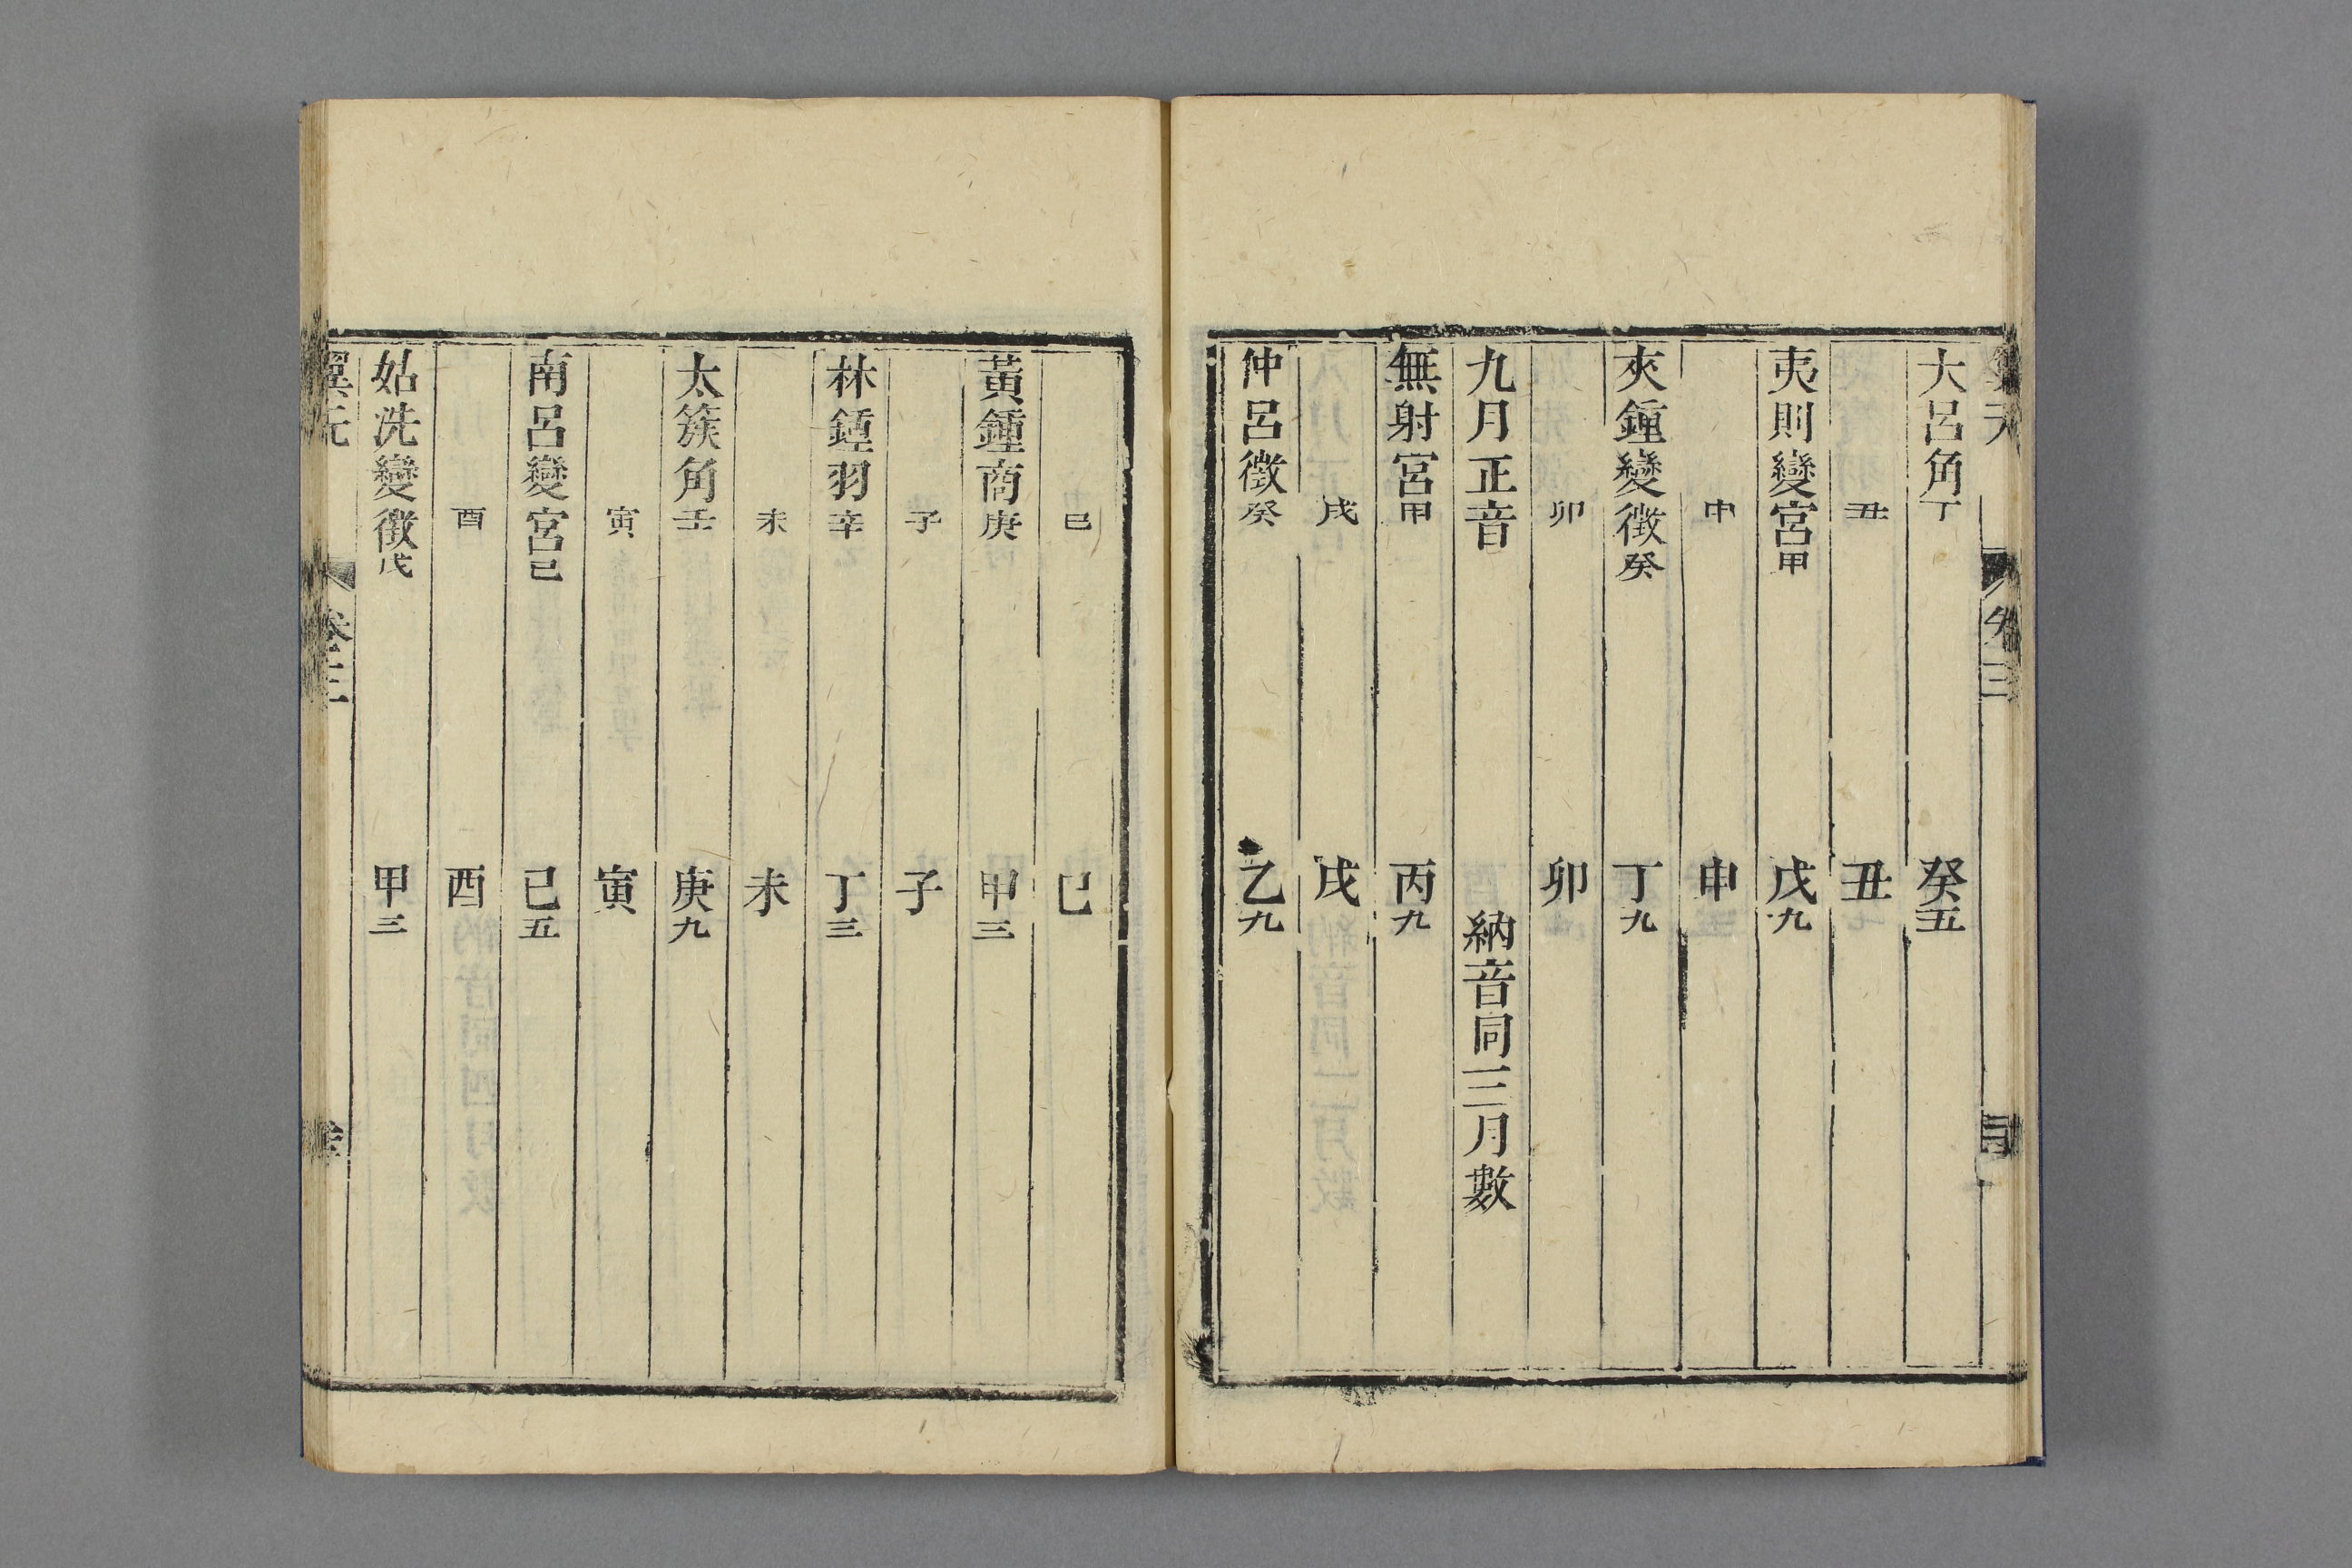 大呂角丁 癸五
丑 丑
夷則變宮甲 戊九
申 申
夾鍾變徵癸 丁九
卯 卯
九月正音 納音同三月數
無射宮甲 丙九
戌 戌
仲呂徵癸 乙九
巳 巳
黃鍾商庚 甲三
子 子
林鍾羽辛 丁三
未 未
太簇角壬 庚九
寅 寅
南呂變宮己 己五
酉 酉
姑洗變徵戊 甲三
翼元 卷三